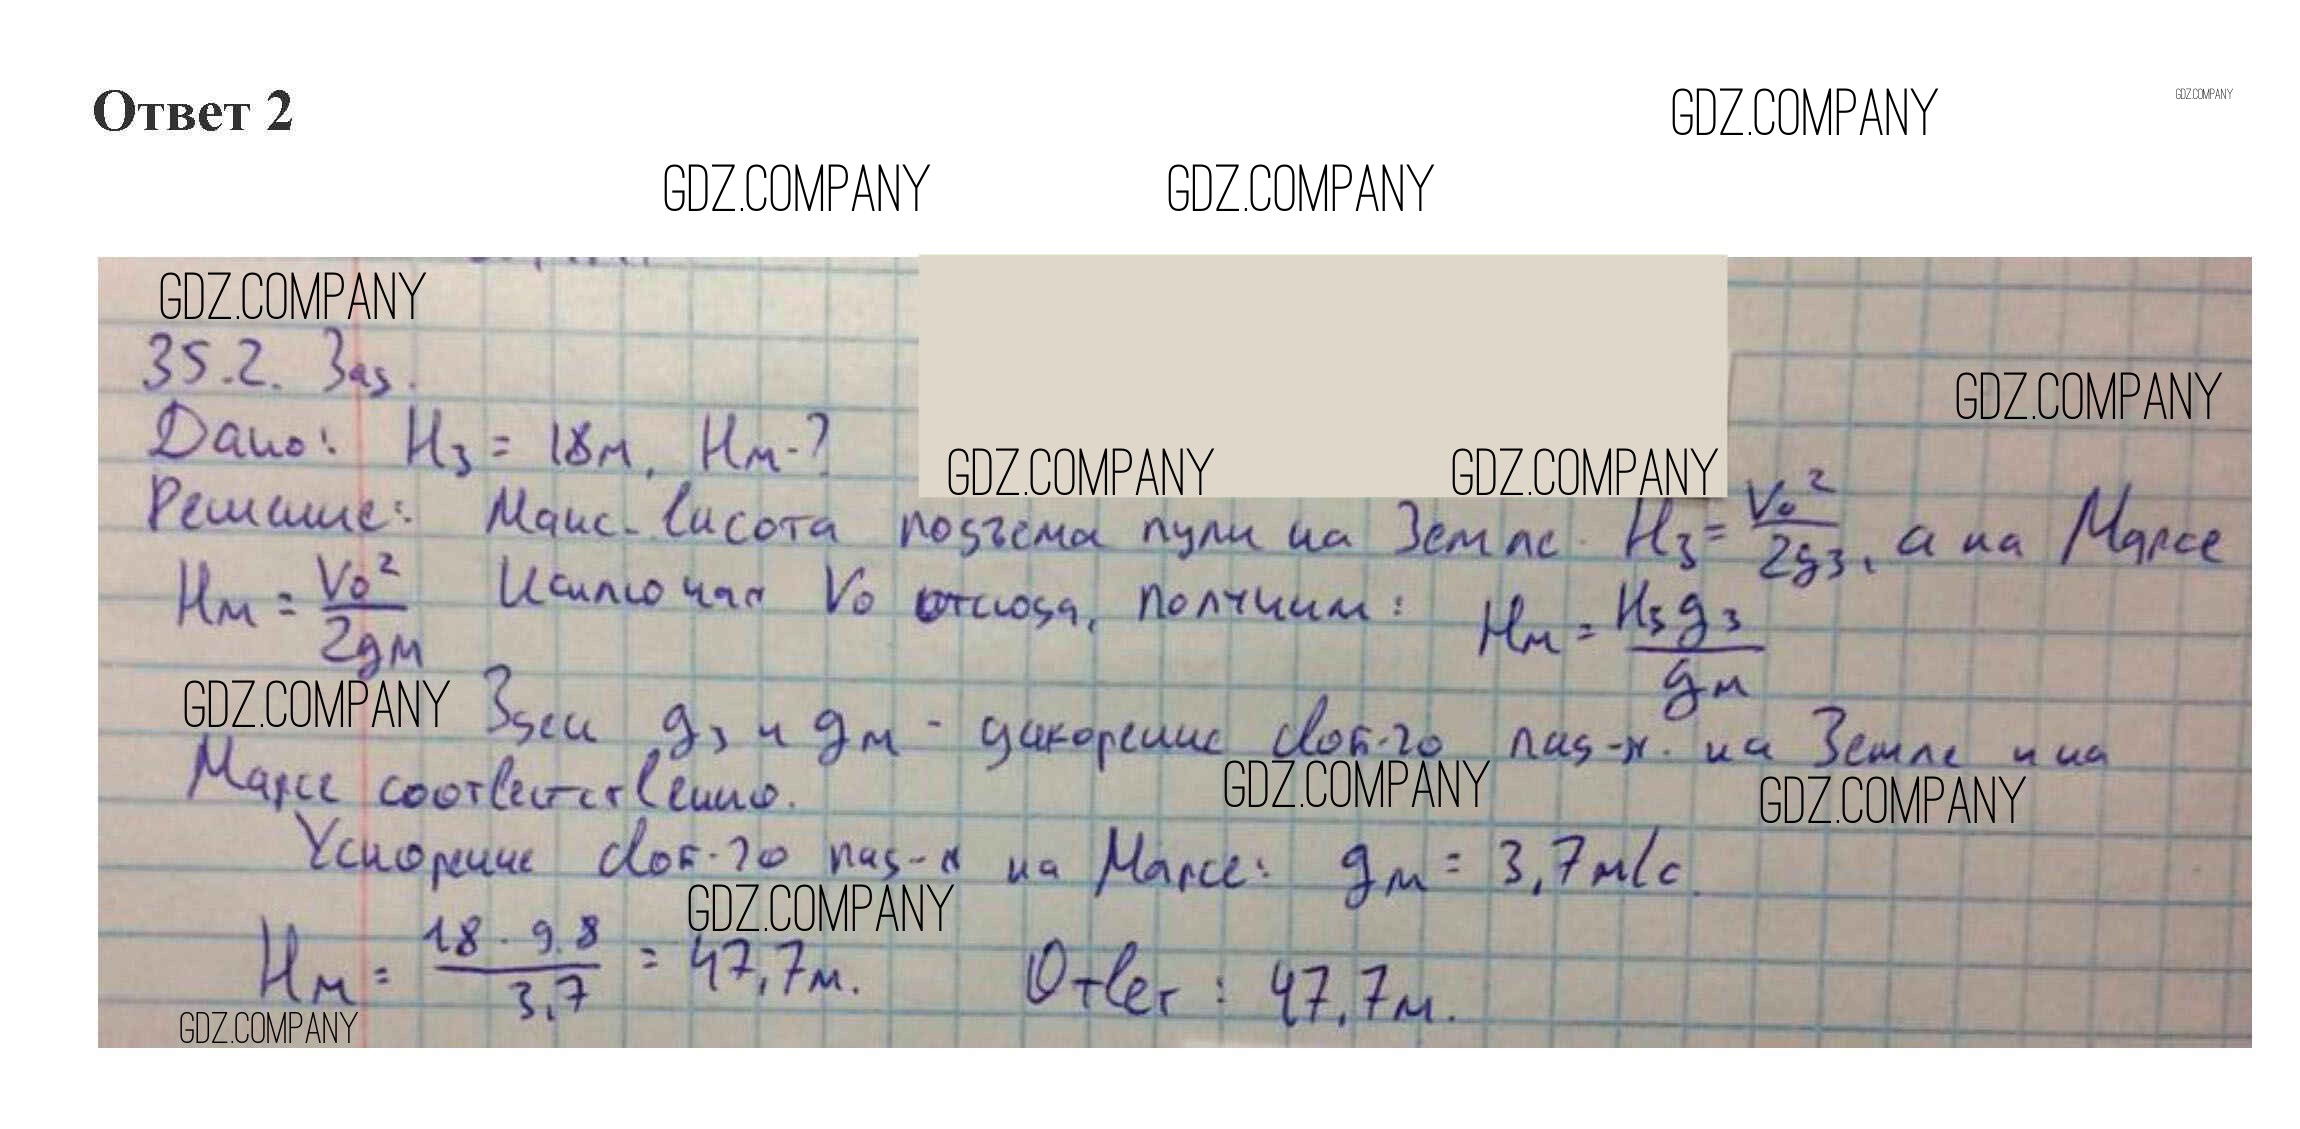 Ответ 2
GDZ.COMPANY
GDZ.COMPANY
GDZ.COMPANY GDZ.COMPANY
GDZ.COMPANY
35.2. Зад.
GDZ.COMPANY
Дано: Hз = 18м, Hм-?
GDZ.COMPANY GDZ.COMPANY
Решение: Макс. высота подъема пули на Земле Hз = V₀²/2gз, а на Марсе
Hм = V₀²/2gм Исключая V₀ отсюда, получим: Hм = Hзgз/gм
GDZ.COMPANY
Здесь gз и gм - ускорение своб-го пад-я на Земле и на
Марсе соответственно.
GDZ.COMPANY GDZ.COMPANY
Ускорение своб-го пад-я на Марсе: gм = 3,7м/с
GDZ.COMPANY
Hм = 18·9.8/3,7 = 47,7м. Ответ: 47,7м.
GDZ.COMPANY